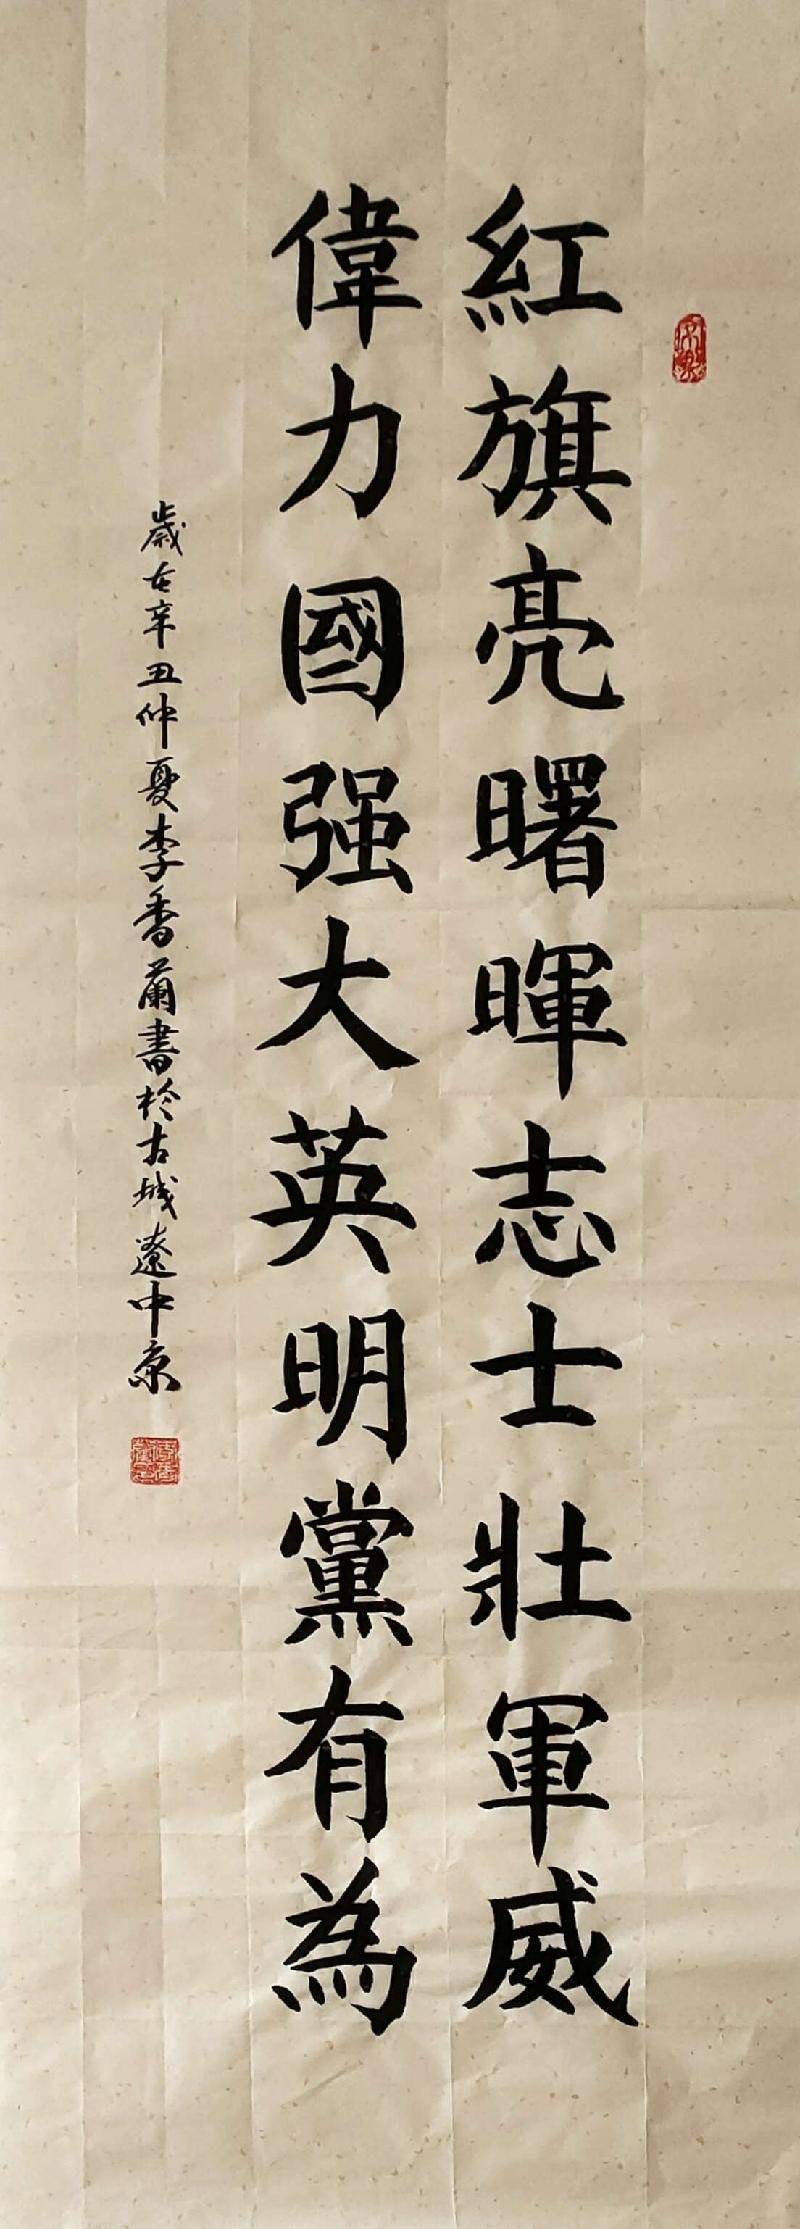 紅旗亮曙暉志士壯軍威
偉力國强大英明黨有為
歲在辛丑仲夏李香蘭書於古城遼中京